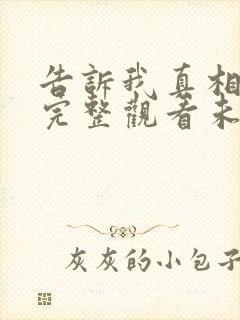 告訴我真相
完整觀看未
灰灰的小包子